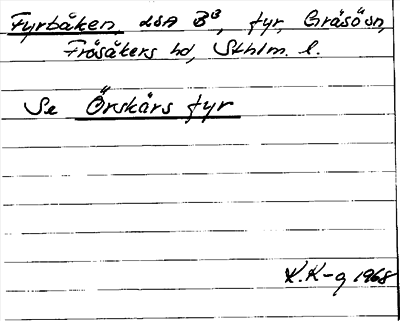 Fyrbåken, LSA B³, fyr, Gräsö sn,
Frösåkers hd, Sthlm. l.
Se Örskärs fyr
K.K-g 1968